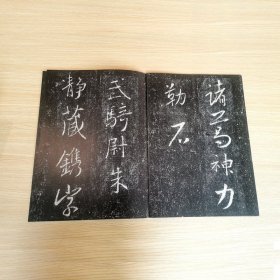 諸葛神力
勒石
武騎尉朱
靜藏鐫字